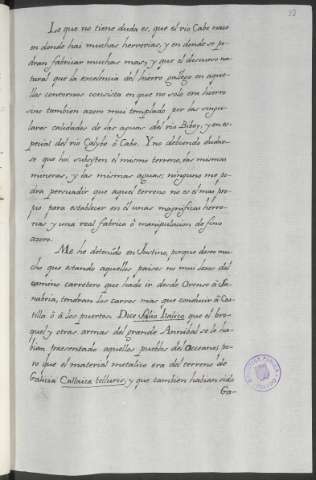 Lo que no tiene duda es, que el rio Cabe nace
en donde hai muchas herrerias, y en donde se po-
dran fabricar muchas mas; y que el discurso na-
tural que la excelencia del hierro gallego en aque-
llos contornos consista en que no solo era hierro
sino tambien azero mui templado por las singu-
lares calidades de las aguas del rio Bibey, y en es-
pecial del rio Calybe ò Cabe. Y no debiendo dudar-
se que hoi subsisten el mismo terreno, las mismas
mineras, y las mismas aguas; ninguno me po-
drá persuadir que aquel terreno no es el mui pro-
pio para establecer en él unas magnificas herre-
rias y una real fabrica ò manipulacion de fino
azero.
Me he detenido en Justino, porque deseo mu-
cho que estando aquellos paises no mui lexos del
camino carretero que hade ir desde Orense à Sa-
nabria, tendran los carros mas que conducir à Cas-
tilla ò à los puertos. Dice Silio Italico que el bro-
quel y otras armas del grande Annibal se le ha-
bian presentado aquellos pueblos del Oceano; pe-
ro que el material metalico era del terreno de
Galicia Callaica telluris, y que tambien habian sido
Ga-